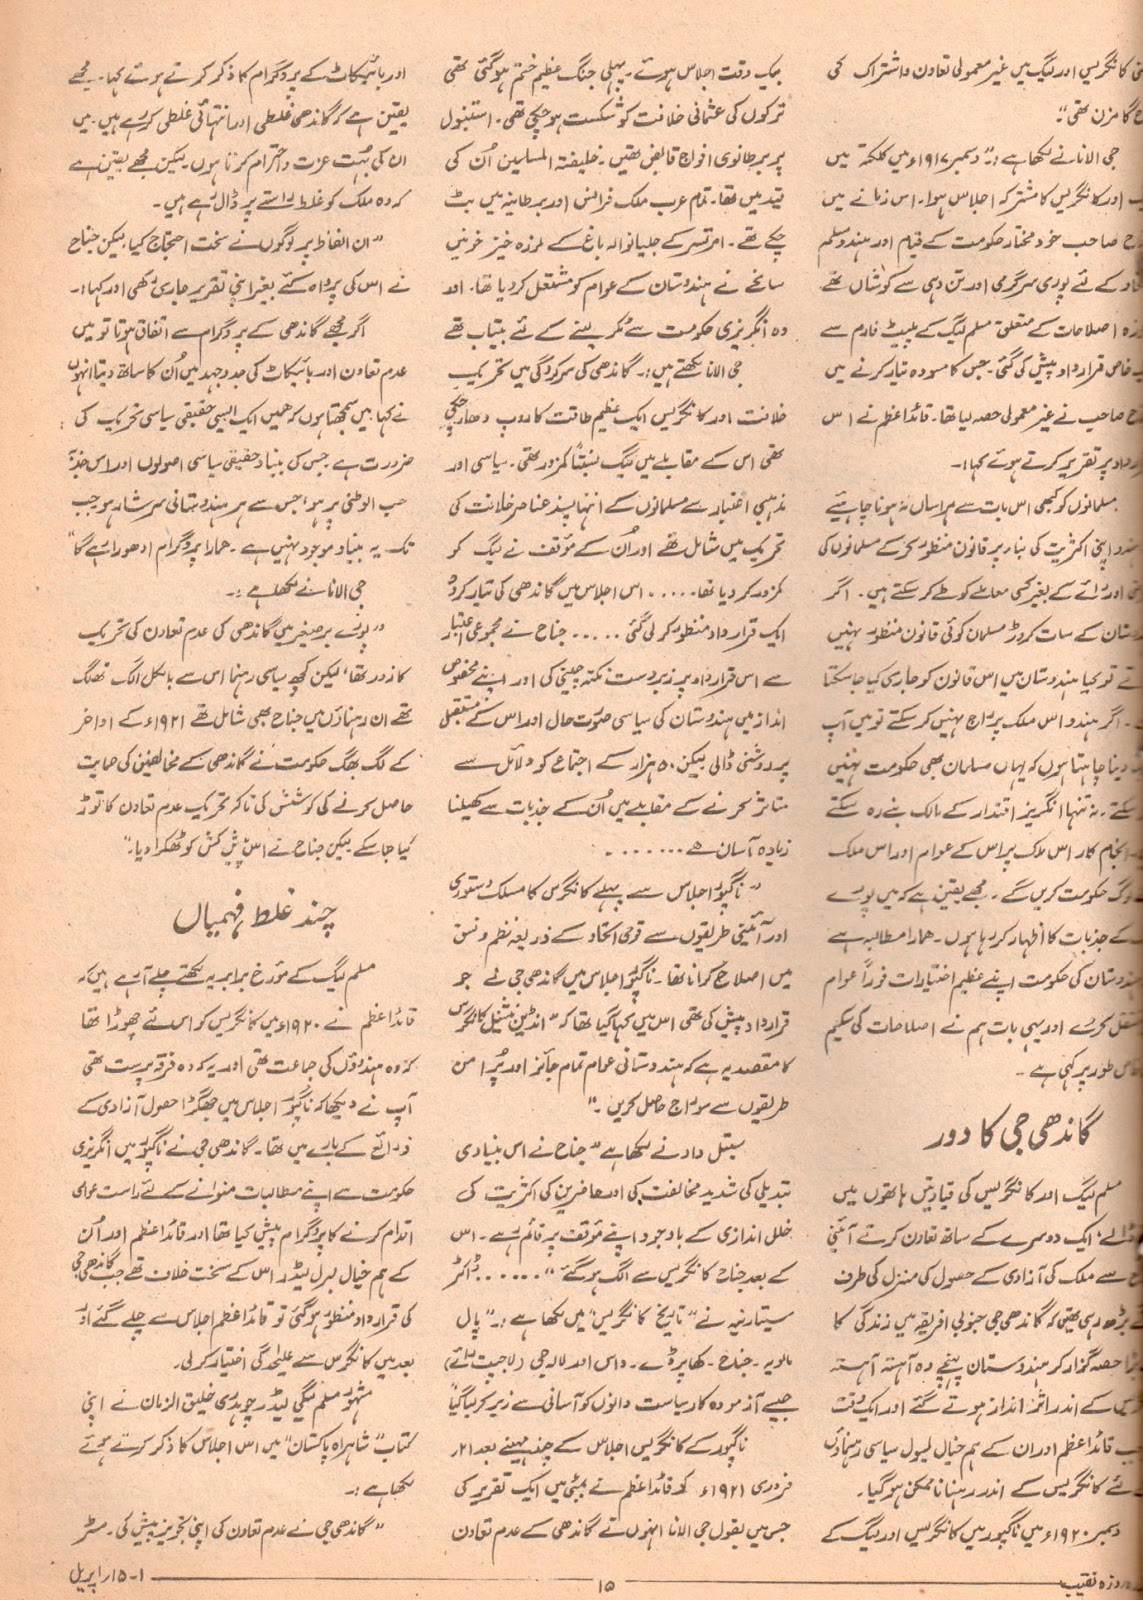 کانگریس اور لیگ میں غیر معمولی تعاون و اشتراک کی
گامزن تھی"۔
جی الانا نے لکھا ہے :۔" دسمبر ۱۹۱۷ء میں کلکتہ میں
اور کانگریس کا مشترکہ اجلاس ہوا۔ اس زمانے میں
صاحب خود مختار حکومت کے قیام اور ہندو مسلم
کے لئے پوری سرگرمی اور تن دہی سے کوشاں تھے
اصلاحات کے متعلق مسلم لیگ کے پلیٹ فارم سے
خاص قرارداد پیش کی گئی۔ جس کا مسودہ تیار کرنے میں
صاحب نے غیر معمولی حصہ لیا تھا۔ قائد اعظم نے اس
پر تقریر کرتے ہوئے کہا:۔
مسلمانوں کو کبھی اس بات سے ہراساں نہ ہونا چاہیئے
اپنی اکثریت کی بناء پر قانون منظور کر کے مسلمانوں کی
اور رائے کے بغیر کسی معاملے کو طے کر سکتے ہیں۔ اگر
کے سات کروڑ مسلمان کوئی قانون منظور نہیں
تو کیا ہندوستان میں اس قانون کو جاری کیا جا سکتا
۔ اگر ہندو اس ملک پر راج نہیں کر سکتے تو میں آپ
دینا چاہتا ہوں کہ یہاں مسلمان بھی حکومت نہیں
سکتے۔ نہ تنہا انگریز اقتدار کے مالک بنے رہ سکتے
انجام کار اس ملک پر اس کے عوام اور اس ملک
حکومت کریں گے۔ مجھے یقین ہے کہ میں پورے
کے جذبات کا اظہار کر رہا ہوں۔ ہمارا مطالبہ ہے
کی حکومت اپنے عظیم اختیارات فوراً عوام
کرے اور یہی بات ہم نے اصلاحات کی سکیم
طور پر کہی ہے۔
گاندھی جی کا دور
مسلم لیگ اور کانگریس کی قیادتیں ہاتھوں میں
ایک دوسرے کے ساتھ تعاون کرتے آئینی
سے ملک کی آزادی کے حصول کی منزل کی طرف
بڑھ رہی تھیں کہ گاندھی جی جنوبی افریقہ میں زندگی کا
حصہ گزار کر ہندوستان پہنچے وہ آہستہ آہستہ
کے اندر اثر انداز ہوتے گئے اور ایک وقت
قائد اعظم اور ان کے ہم خیال لبرل سیاسی رہنماؤں
کے لئے کانگریس کے اندر رہنا ناممکن ہو گیا۔
دسمبر ۱۹۲۰ء میں ناگپور میں کانگریس اور لیگ کے
بیک وقت اجلاس ہوئے۔ پہلی جنگ عظیم ختم ہو گئی تھی
ترکوں کی عثمانی خلافت کو شکست ہو چکی تھی۔ استنبول
پر برطانوی افواج قابض تھیں۔ خلیفتہ المسلمین اُن کی
قید میں تھا۔ تمام عرب ملک فرانس اور برطانیہ میں بٹ
چکے تھے۔ امرتسر کے جلیانوالہ باغ کے لرزہ خیز خونیں
سانحے نے ہندوستان کے عوام کو مشتعل کر دیا تھا۔ اور
وہ انگریزی حکومت سے ٹکر لینے کے لئے بیتاب تھے
جی الانا لکھتے ہیں :۔ گاندھی کی سرکردگی میں تحریک
خلافت اور کانگریس ایک عظیم طاقت کا روپ دھار چکی
تھی اس کے مقابلے میں لیگ نسبتاً کمزور تھی۔ سیاسی اور
مذہبی اعتبار سے مسلمانوں کے انتہا پسند عناصر خلافت کی
تحریک میں شامل تھے اور اُن کے مؤقف نے لیگ کو
کمزور کر دیا تھا..... اس اجلاس میں گاندھی کی تیار کردہ
ایک قرارداد منظور کر لی گئی ..... جناح نے مجموعی اعتبار
سے اس قرارداد پر زبردست نکتہ چینی کی اور اپنے مخصوص
انداز میں ہندوستان کی سیاسی صورت حال اور اس کے مستقبل
پر روشنی ڈالی لیکن ۵۰ ہزار کے اجتماع کو دلائل سے
متاثر کرنے کے مقابلے میں اُن کے جذبات سے کھیلنا
زیادہ آسان ہے .......
"ناگپور اجلاس سے پہلے کانگرس کا مسلک دستوری
اور آئینی طریقوں سے قومی اتحاد کے ذریعہ نظم و نسق
میں اصلاح کرانا تھا۔ ناگپور اجلاس میں گاندھی جی نے جو
قرارداد پیش کی تھی اس میں کہا گیا تھا کہ "انڈین نیشنل کانگرس
کا مقصد یہ ہے کہ ہندوستانی عوام تمام جائز اور پُر امن
طریقوں سے سوراج حاصل کریں۔"
سیتل واد نے لکھا ہے" جناح نے اس بنیادی
تبدیلی کی شدید مخالفت کی اور حاضرین کی اکثریت کی
خلل اندازی کے باوجود اپنے مؤقف پر قائم رہے۔ اس
کے بعد جناح کانگریس سے الگ ہو گئے"...... ڈاکٹر
سیتارمیہ نے "تاریخ کانگریس" میں لکھا ہے :۔" پال
مالویہ۔ جناح۔ کھاپرڈے۔ داس اور لالہ جی (لاجپت رائے)
جیسے آزمودہ کار سیاست دانوں کو آسانی سے زیر کر لیا گیا"
ناگپور کے کانگریس اجلاس کے چند مہینے بعد ۲۱؍
فروری ۱۹۲۱ء کو قائد اعظم نے بمبئی میں ایک تقریر کی
جس میں بقول جی الانا انہوں نے گاندھی کے عدم تعاون
اور بائیکاٹ کے پروگرام کا ذکر کرتے ہوئے کہا۔ مجھے
یقین ہے کہ گاندھی غلطی اور انتہائی غلطی کر رہے ہیں۔ میں
ان کی بہت عزت و احترام کرتا ہوں۔ لیکن مجھے یقین ہے
کہ وہ ملک کو غلط راستے پر ڈال رہے ہیں۔
"ان الفاظ پر لوگوں نے سخت احتجاج کیا لیکن جناح
نے اس کی پرواہ کئے بغیر اپنی تقریر جاری رکھی اور کہا :۔
اگر مجھے گاندھی کے پروگرام سے اتفاق ہوتا تو میں
عدم تعاون اور بائیکاٹ کی جدوجہد میں اُن کا ساتھ دیتا انہوں
نے کہا میں سمجھتا ہوں کہ ہمیں ایک ایسی حقیقی سیاسی تحریک کی
ضرورت ہے جس کی بنیاد حقیقی سیاسی اصولوں اور اس جذبہ
حب الوطنی پر ہو؛ جس سے ہر ہندوستانی سرشار ہو جب
تک یہ بنیاد موجود نہیں ہے۔ ہمارا پروگرام ادھورا رہے گا"
جی الانا نے لکھا ہے :۔
"پورے برصغیر میں گاندھی کی عدم تعاون کی تحریک
کا زور تھا، لیکن کچھ سیاسی رہنما اس سے بالکل الگ تھلگ
تھے ان رہنماؤں میں جناح بھی شامل تھے ۱۹۲۱ء کے اواخر
کے لگ بھگ حکومت نے گاندھی کے مخالفین کی حمایت
حاصل کرنے کی کوشش کی تاکہ تحریک عدم تعاون کا توڑ
کیا جا سکے لیکن جناح نے اس پیش کش کو ٹھکرا دیا۔"
چند غلط فہمیاں
مسلم لیگ کے مؤرخ برابر یہ لکھتے چلے آئے ہیں کہ
قائد اعظم نے ۱۹۲۰ء میں کانگریس کو اس لئے چھوڑا تھا
کہ وہ ہندوؤں کی جماعت تھی اور یہ کہ وہ فرقہ پرست تھی
آپ نے دیکھا کہ ناگپور اجلاس میں جھگڑا حصول آزادی کے
ذرائع کے بارے میں تھا۔ گاندھی جی نے ناگپور میں انگریزی
حکومت سے اپنے مطالبات منوانے کے لئے راست عوامی
اقدام کرنے کا پروگرام پیش کیا تھا اور قائد اعظم اور اُن
کے ہم خیال لبرل لیڈر اس کے سخت خلاف تھے جب گاندھی جی
کی قرارداد منظور ہو گئی تو قائد اعظم اجلاس سے چلے گئے اور
بعد میں کانگرس سے علیحدگی اختیار کر لی۔
مشہور مسلم لیگی لیڈر چوہدری خلیق الزمان نے اپنی
کتاب "شاہراہ پاکستان" میں اس اجلاس کا ذکر کرتے ہوئے
لکھا ہے :۔
"گاندھی جی نے عدم تعاون کی اپنی تجویز پیش کی۔ مسٹر
روزہ نقیب
۱۵
۱۔۱۵؍اپریل